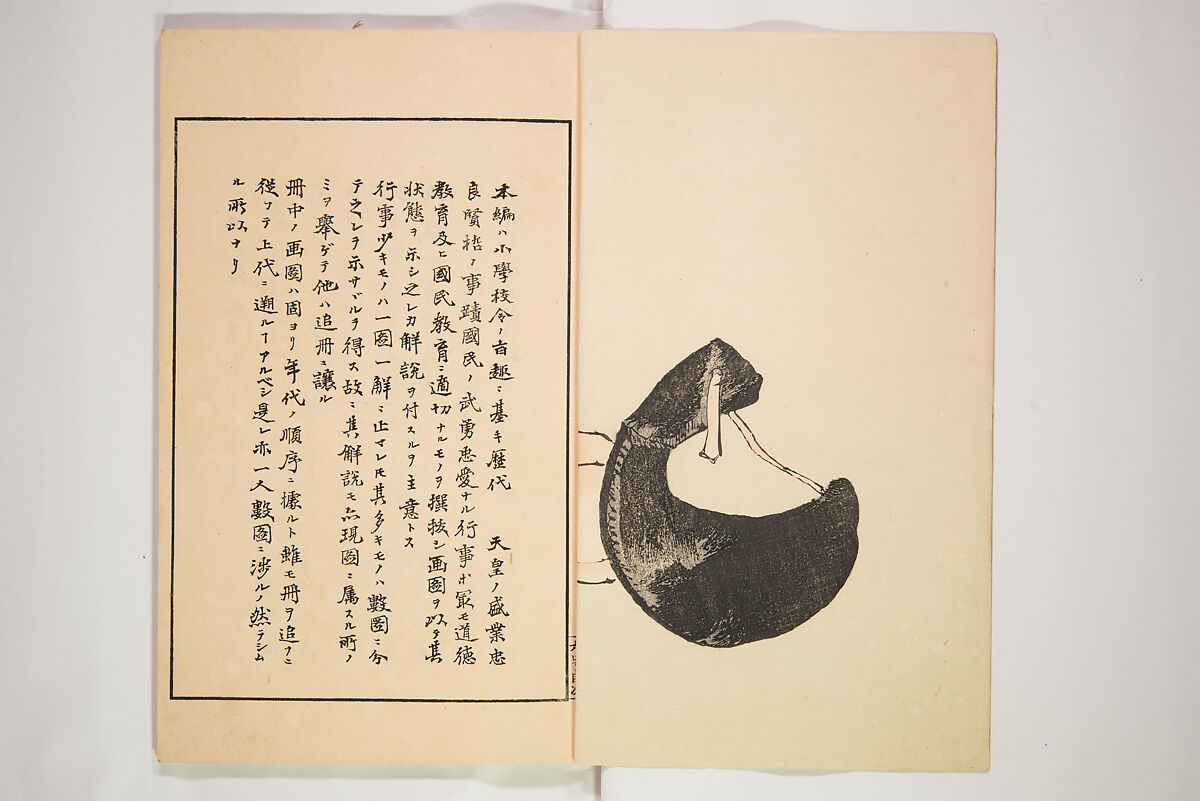 本編ハ小學校令ノ旨趣ニ基キ歴代　天皇ノ盛業忠
良賢哲ノ事蹟國民ノ武勇忠愛ナル行事ホ最モ道徳
教育及ヒ國民教育ニ適切ナルモノヲ撰抜シ画圖ヲ以テ其
状態ヲ示シ之レカ解説ヲ付スルヲ主意トス
行事少キモノハ一圖一解ニ止マレ𪜈其多キモノハ數圖ニ分
テ之レヲ示サヾルヲ得ス故ニ其解説モ亦現圖ニ属スル所ノ
ミヲ舉ゲテ他ハ追冊ニ讓ル
冊中ノ画圖ハ固ヨリ年代ノ順序ニ據ルト雖モ冊ヲ追フニ
從フテ上代ニ遡ルヿアルベシ是レ亦一人數圖ニ渉ルノ然ラシム
ル所以ナリ